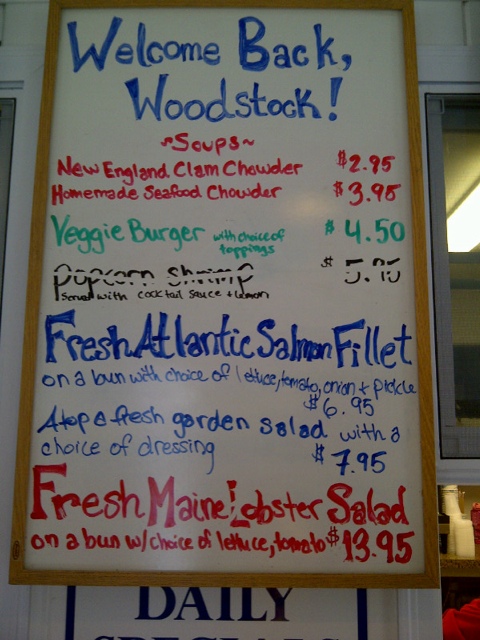 Welcome Back,
Woodstock!
~Soups~
New England Clam Chowder $2.95
Homemade Seafood Chowder $3.95
Veggie Burger with choice of toppings $4.50
popcorn shrimp $
served with cocktail sauce + lemon
Fresh Atlantic Salmon Fillet
on a bun with choice of lettuce, tomato, onion + pickle
$6.95
Atop a fresh garden salad with a
choice of dressing $7.95
Fresh Maine Lobster Salad
on a bun w/choice of lettuce, tomato $13.95
DAILY
SPECIALS